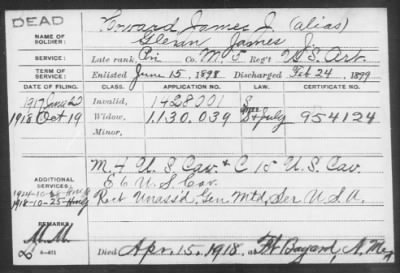 DEAD
NAME OF SOLDIER:
Howard James J. (alias)
James J.
SERVICE:
Late rank, Pri Co. M, 5 Reg't U.S. Art.
TERM OF SERVICE:
Enlisted June 15, 1898 Discharged Feb 24, 1899
DATE OF FILING. CLASS. APPLICATION NO. LAW. CERTIFICATE NO.
1917 Invalid, 1428001
1918 Oct 19 Widow, 1.130.039 954124
Minor,
ADDITIONAL SERVICES:
M. 4 U.S. Cav. & C 15 U.S. Cav.
E 6 U.S. Cav.
Rect Unass'd, Gen. Mtd. Ser U.S.A.
1918-10-25
REMARKS
M.M.
Died Apr. 15, 1918, at Ft Bayard, N. Mex